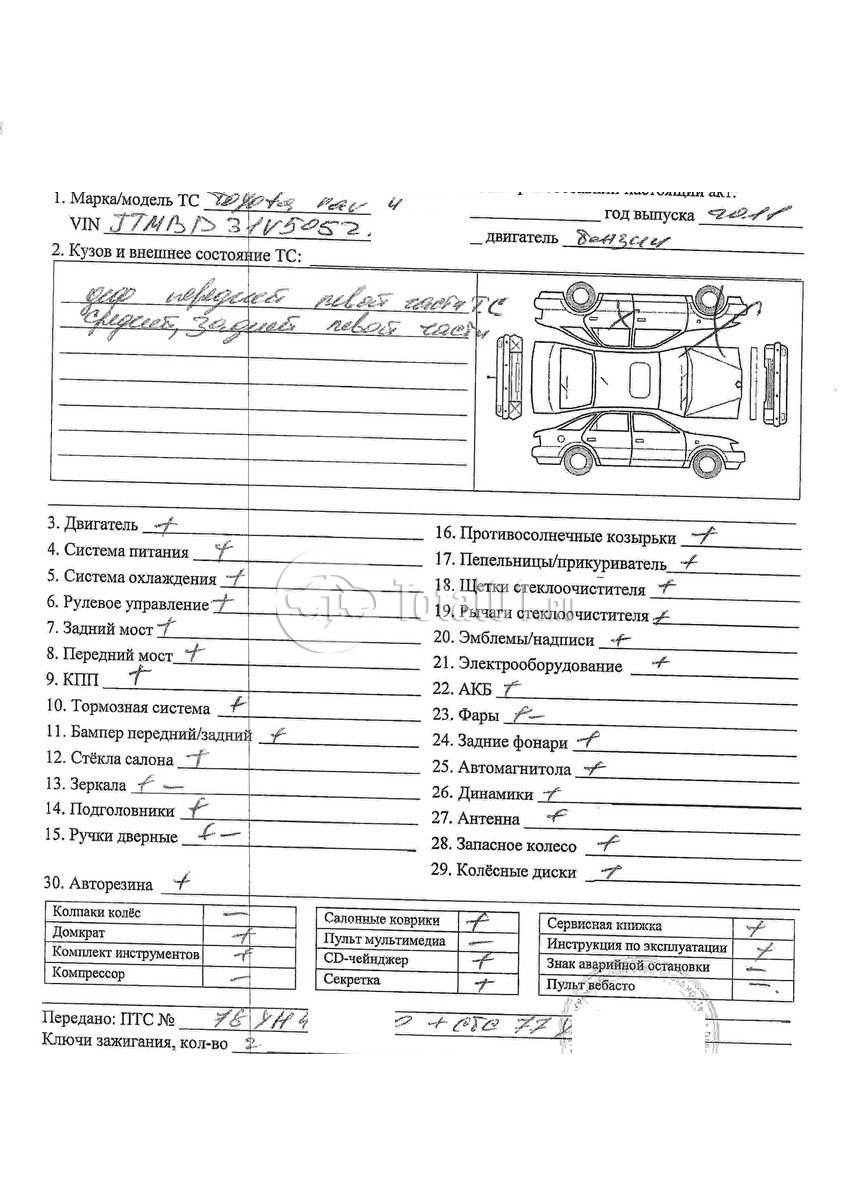 настоящий акт.
1. Марка/модель ТС Toyota rav 4
год выпуска 2011
VIN JTMBD31V5052.
двигатель бензин
2. Кузов и внешнее состояние ТС:
деф передней левой части ТС
средней, задней левой части
3. Двигатель +
4. Система питания +
5. Система охлаждения +
6. Рулевое управление +
7. Задний мост +
8. Передний мост +
9. КПП +
10. Тормозная система +
11. Бампер передний/задний +
12. Стёкла салона +
13. Зеркала + –
14. Подголовники +
15. Ручки дверные + –
16. Противосолнечные козырьки +
17. Пепельницы/прикуриватель +
18. Щетки стеклоочистителя +
19. Рычаги стеклоочистителя +
20. Эмблемы/надписи +
21. Электрооборудование +
22. АКБ +
23. Фары + –
24. Задние фонари +
25. Автомагнитола +
26. Динамики +
27. Антенна +
28. Запасное колесо +
29. Колёсные диски +
30. Авторезина +
Total01.ru
Колпаки колёс –
Домкрат +
Комплект инструментов +
Компрессор –
Салонные коврики +
Пульт мультимедиа –
CD-чейнджер +
Секретка +
Сервисная книжка +
Инструкция по эксплуатации +
Знак аварийной остановки –
Пульт вебасто –
Передано: ПТС № 78 УН 4 + СТС 77 У
Ключи зажигания, кол-во 2